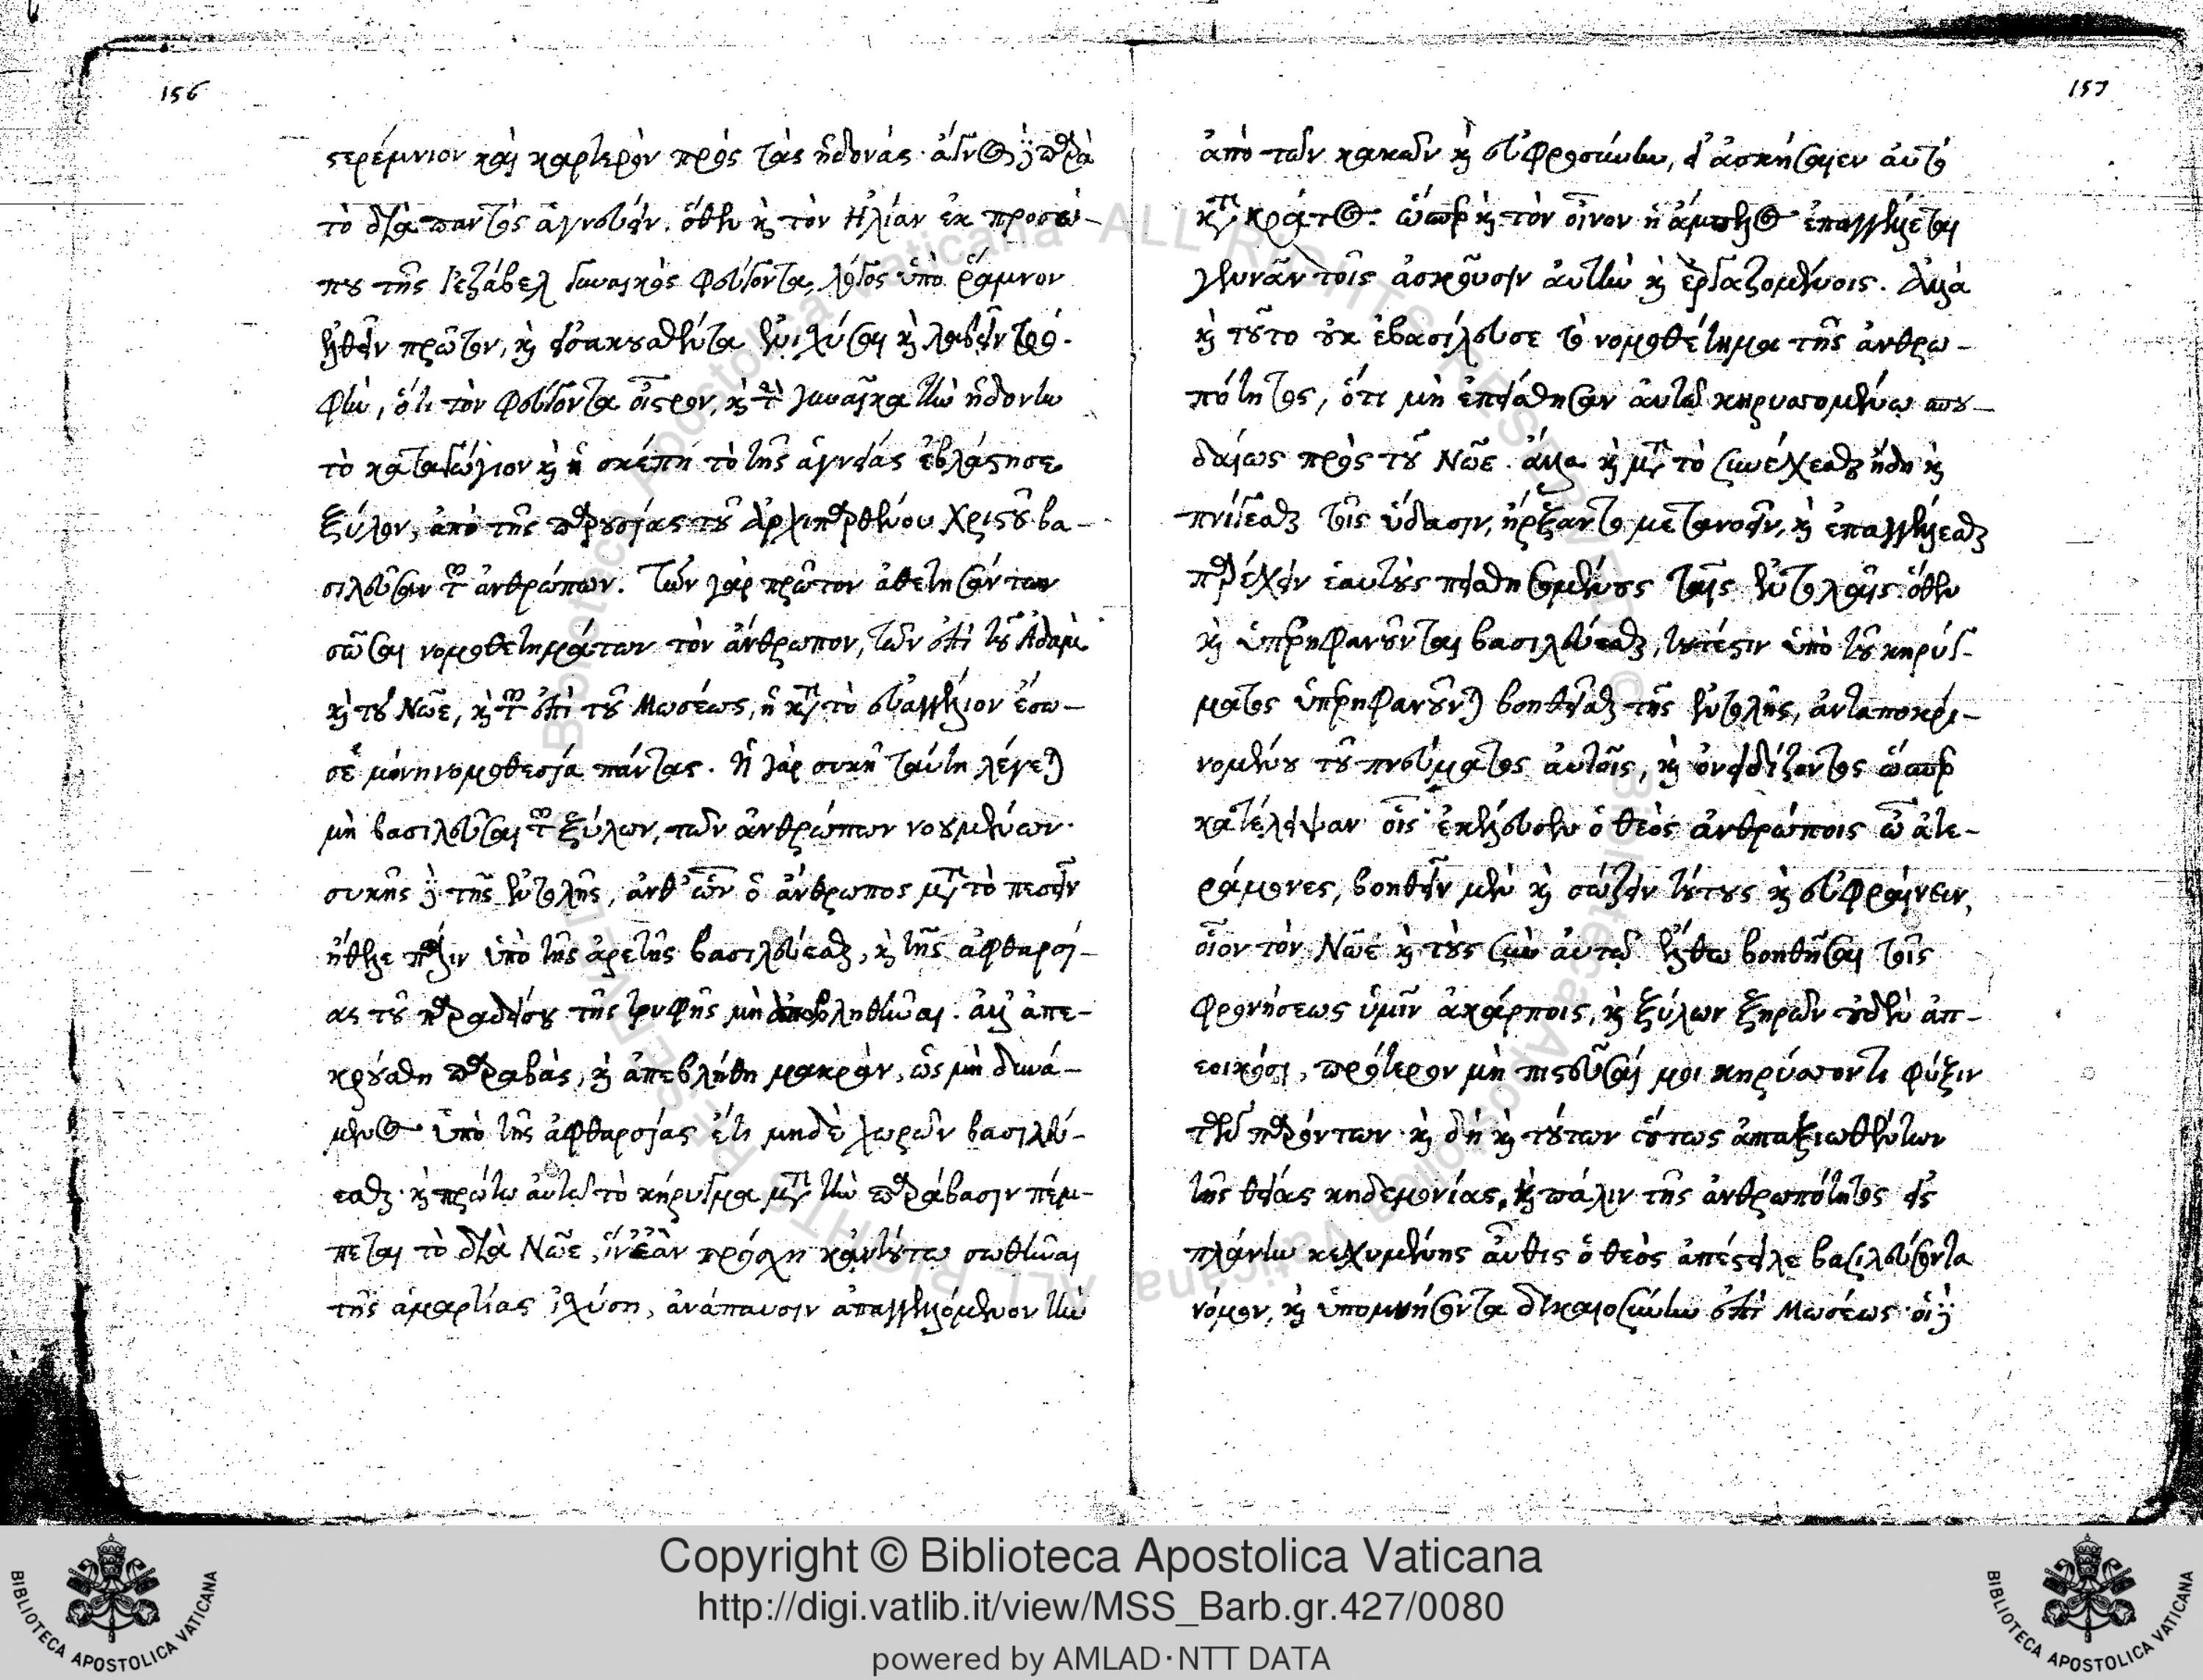 156
στερέμνιον καὶ καρτερὸν πρὸς τὰς ἡδονάς. ἄγνος δὲ παρὰ
τὸ διὰ παντὸς ἁγνεύειν. ὅθεν καὶ τὸν Ηλίαν ἐκ προσώ-
που τῆς Ιεζάβελ γυναικὸς φεύγοντα, λόγος ὑπὸ ῥάμνον
ἐλθεῖν πρῶτον, καὶ εἰσακουσθέντα ἐνισχύσαι καὶ λαβεῖν τρο-
φὴν, ὅτι τὸν φεύγοντα οἶστρον, καὶ τὴν γυναῖκα τὴν ἡδονὴν
τὸ καταγώγιον καὶ ἡ σκέπη τὸ τῆς ἁγνείας ἐβλάστησε
ξύλον, ἀπὸ τῆς παρουσίας τοῦ Ἀρχιπαρθένου Χριστοῦ βα-
σιλεῦσαν τῶν ἀνθρώπων. Τῶν γὰρ πρῶτον ἀθετησάντων
σῶσαι νομοθετημάτων τὸν ἄνθρωπον, τῶν ἐπὶ τοῦ Ἀδὰμ
καὶ τοῦ Νῶε, καὶ τῶν ἐπὶ τοῦ Μωσέως, ἡ κατὰ τὸ εὐαγγέλιον ἔσω-
σε μόνη νομοθεσία πάντας. Ἡ γὰρ συκῆ ταύτῃ λέγεται
μὴ βασιλεῦσαι τῶν ξύλων, τῶν ἀνθρώπων νοουμένων.
συκῆς δὲ τῆς ἐντολῆς, ἀνθ' ὧν ὁ ἄνθρωπος μετὰ τὸ πεσεῖν
ἤθελε πάλιν ὑπὸ τῆς ἀρετῆς βασιλεύεσθαι, καὶ τῆς ἀφθαρσί-
ας τοῦ παραδείσου τῆς τρυφῆς μὴ ἀποβληθῆναι. ἀλλ' ἀπε-
κρούσθη παραβὰς, καὶ ἀπεβλήθη μακρὰν, ὡς μὴ δυνά-
μενος ὑπὸ τῆς ἀφθαρσίας ἔτι μηδὲ χωρῶν βασιλεύ-
εσθαι. καὶ πρώτῳ αὐτῷ τὸ κήρυγμα μετὰ τὴν παράβασιν πέμ-
πεται τὸ διὰ Νῶε, ἵν' ἐὰν πρόσχῃ κἀν τούτῳ σωθῆναι
τῆς ἁμαρτίας ἰσχύσῃ, ἀνάπαυσιν ἀπαγγελλόμενον τὴν
157
ἀπὸ τῶν κακῶν καὶ εὐφροσύνην, εἰ ἀσκήσαιεν αὐτὸ
κατὰ κράτος. ὥσπερ καὶ τὸν οἶνον ἡ ἄμπελος ἐπαγγέλλεται
γεννᾶν τοῖς ἀσκοῦσιν αὐτὴν καὶ ἐργαζομένοις. Ἀλλὰ
καὶ τοῦτο οὐκ ἐβασίλευσε τὸ νομοθέτημα τῆς ἀνθρω-
πότητος, ὅτι μὴ ἐπείσθησαν αὐτῷ κηρυσσομένῳ σπου-
δαίως πρὸς τοῦ Νῶε. ἀλλὰ καὶ μετὰ τὸ συνέχεσθαι ἤδη καὶ
πνίγεσθαι τοῖς ὕδασιν, ἤρξαντο μετανοεῖν, καὶ ἐπαγγέλλεσθαι
παρέχειν ἑαυτοὺς πεισθησομένους ταῖς ἐντολαῖς. ὅθεν
καὶ ὑπερηφανοῦνται βασιλεύεσθαι, τουτέστιν ὑπὸ τοῦ κηρύγ-
ματος ὑπερηφανοῦνται βοηθεῖσθαι τῆς ἐντολῆς, ἀνταποκρι-
νομένου τοῦ πνεύματος αὐτοῖς, καὶ ὀνειδίζοντος ὥσπερ
κατέλειψαν οἷς ἐκέλευσεν ὁ θεὸς ἀνθρώποις ὦ ἀτε-
ράμονες, βοηθεῖν μὲν καὶ σώζειν τούτους καὶ εὐφραίνειν,
οἷον τὸν Νῶε καὶ τοὺς σὺν αὐτῷ ἔλθω βοηθῆσαι τοῖς
φρονήσεως ὑμῖν ἀκάρποις, καὶ ξύλων ξηρῶν οὐδὲν ἀπ-
εοικόσι, πρότερον μὴ πιστεῦσαί μοι κηρύσσοντι φύξιν
τῶν παρόντων. καὶ δὴ καὶ τούτων οὕτως ἀπαξιωθέντων
τῆς θείας κηδεμονίας, καὶ πάλιν τῆς ἀνθρωπότητος εἰς
πλάνην κεχυμένης αὖθις ὁ θεὸς ἀπέστειλε βασιλεύσοντα
νόμον, καὶ ὑπομνήσοντα δικαιοσύνην ἐπὶ Μωσέως. οἱ δὲ
Copyright © Biblioteca Apostolica Vaticana
http://digi.vatlib.it/view/MSS_Barb.gr.427/0080
powered by AMLAD·NTT DATA
BIBLIOTECA APOSTOLICA VATICANA
BIBLIOTECA APOSTOLICA VATICANA